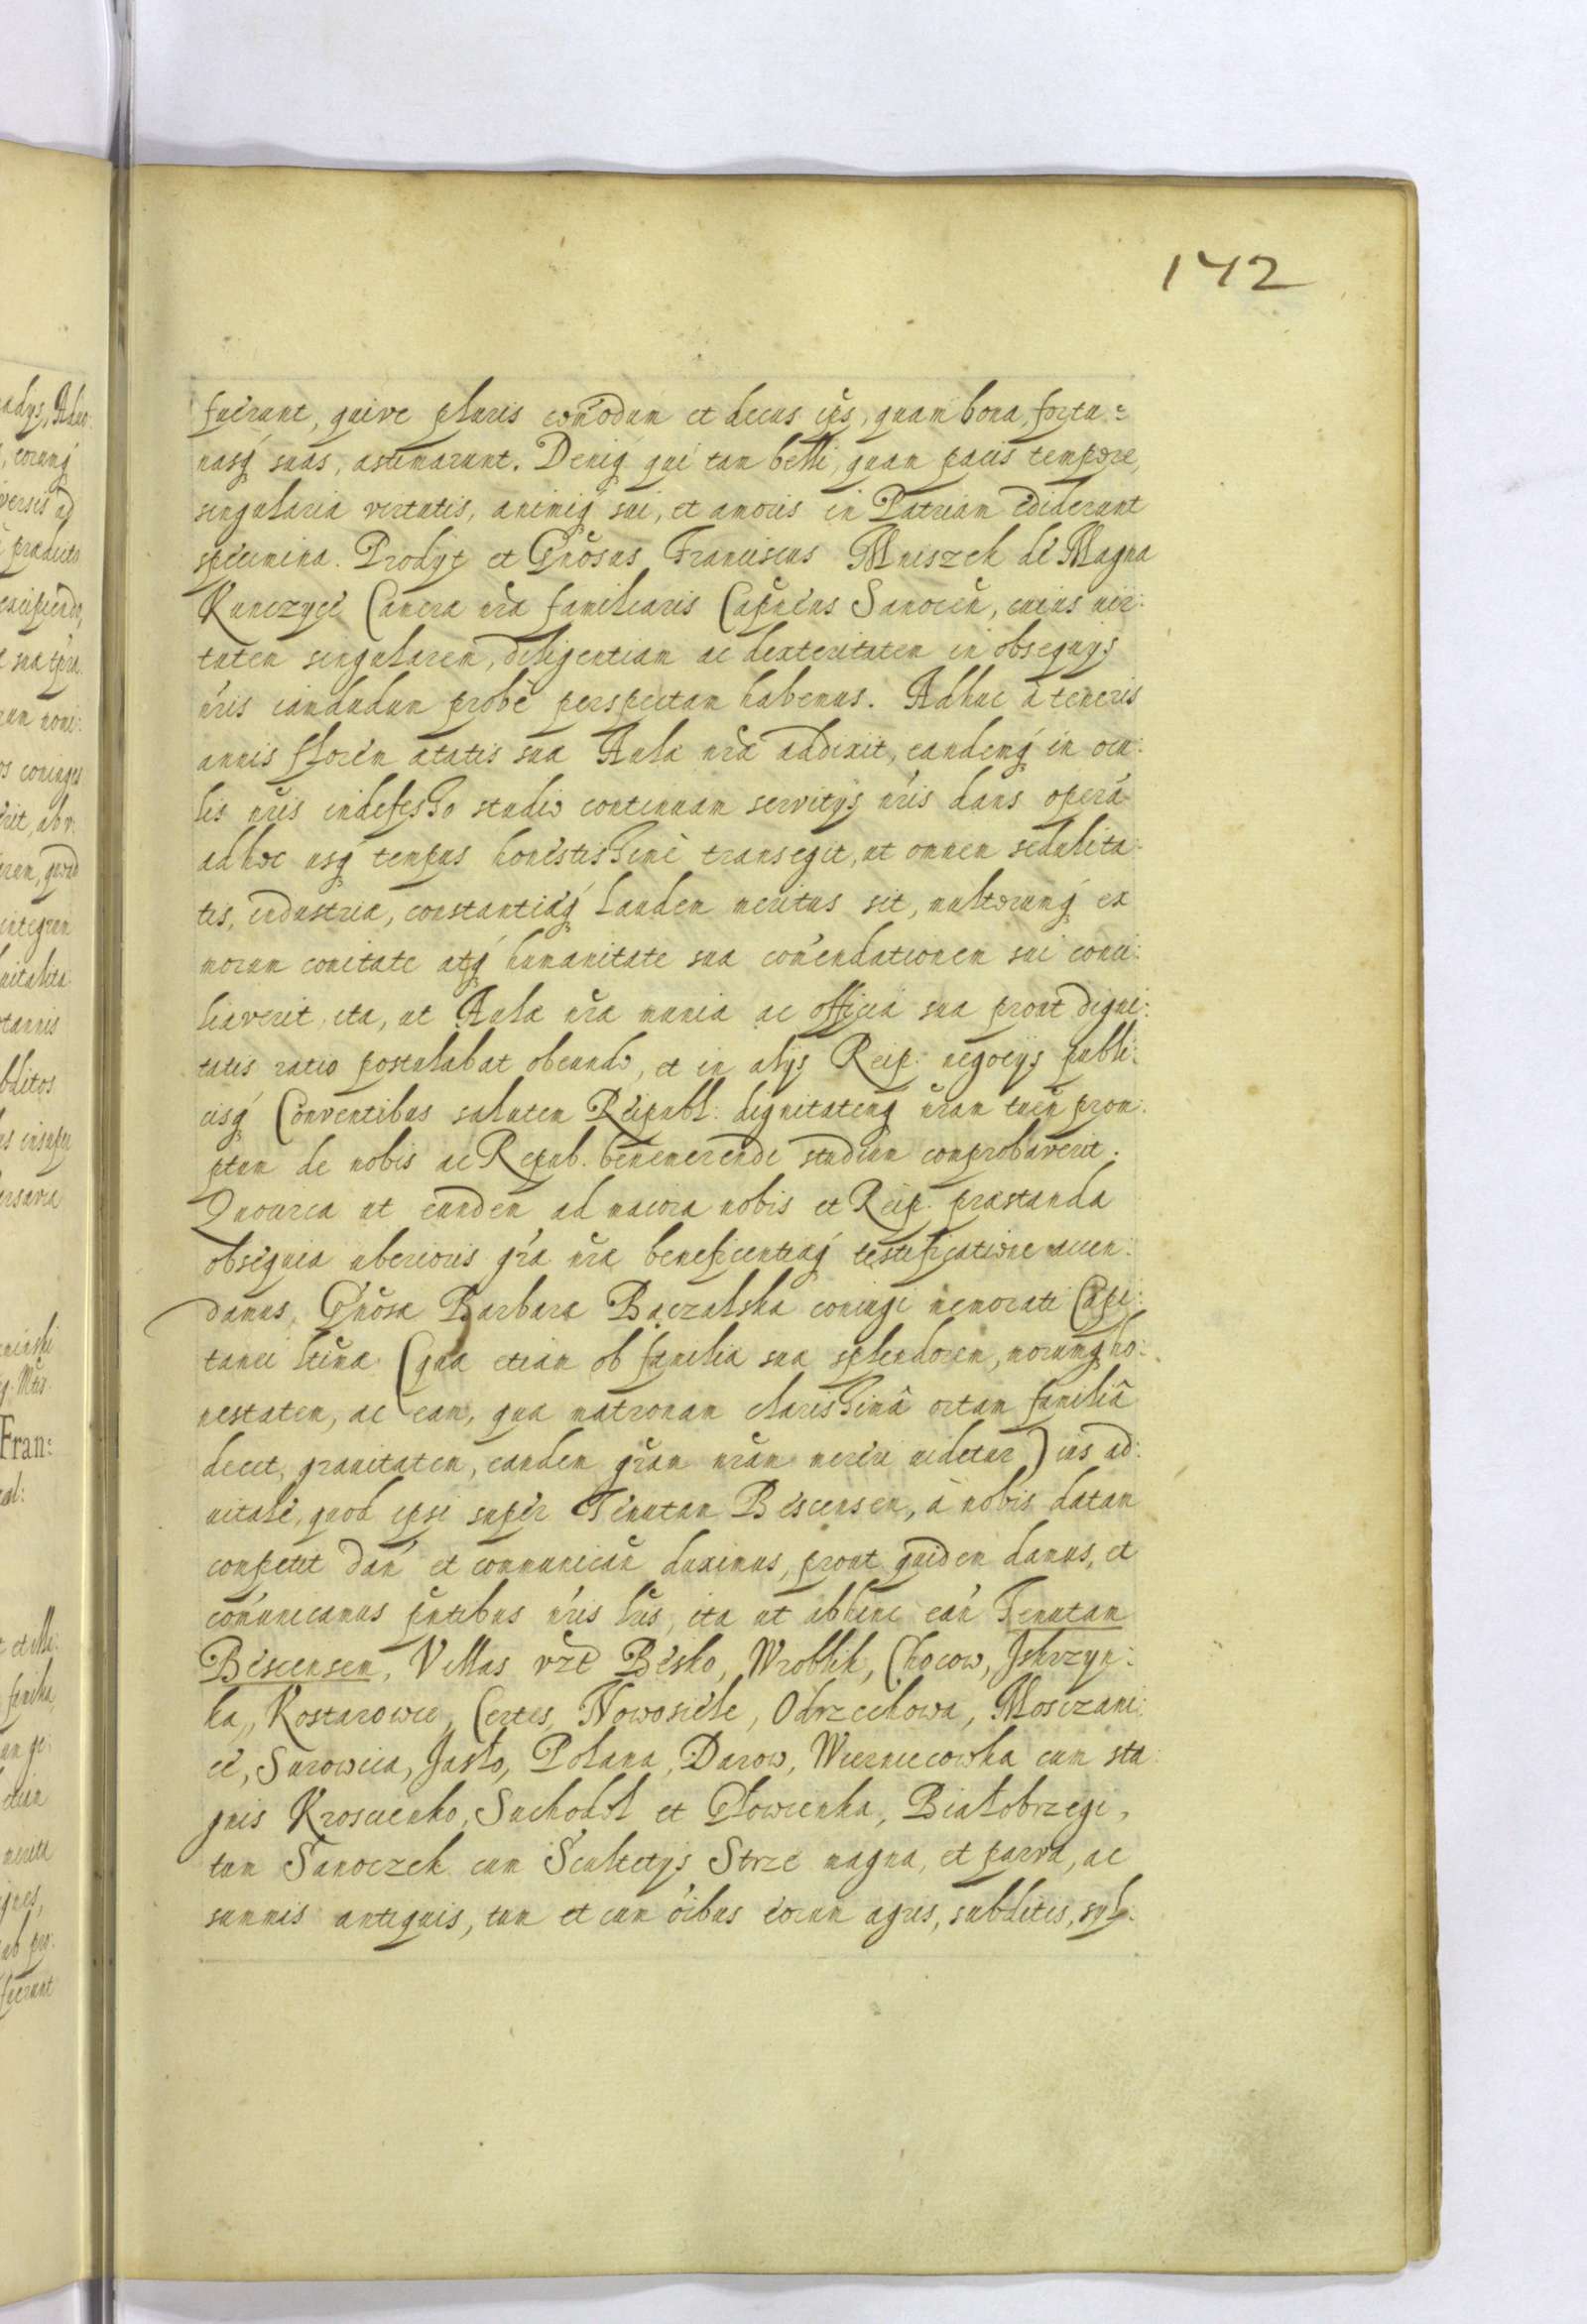 142
fuerunt, quive pluris com̃odum et decus eius, quam bona, fortu=
nasq́ suas, æstimarunt. Deniq́ qui tam belli, quam pacis tempore,
singularia virtutis, animiq́ sui, et amoris in Patriam ediderunt
specimina. Prodijt et Gñosus Franciscus Mniszek de Magna
Kunczyce Camera nrã familiaris Capñeus Sanoceñ, cuius uir:
tutem singularem, diligentiam ac dexteritatem in obsequijs
nr̃is iamdudum probè perspectam habemus. Adhuc à teneris
annis florem ætatis sua Aula nrã addixit, eandemq́ in ocu:
lis nr̃is indefesso studio continuam servitijs nr̃is dans operã
adhoc usq́ tempus honestissimè transegit, ut omnem sedulita:
tis, industria, constantiaq́ laudem meritus sit, multorumq́ ex
morum comitate atq́ humanitate sua com̃endationem sui conci:
liaverit, ita, ut Aula nrã munia ac officia sua prout digni:
tatis ratio postulabat obeundo, et in alijs Reip. negocijs publi:
cisq́ Conventibus salutem Reipubl: dignitatemq́ nrãm tueñ prom:
ptum de nobis ac Repub. benemerendi studium comprobaverit.
Quocirca ut eundem ad maiora nobis et Reip. præstanda
obsequia uberioris gr̃a nrã beneficentiaq́ testificatione accen:
damus, Gñosa Barbara Baczalska coniugi memorati Capi:
tanei ltt̃ima (qua etiam ob familia sua splendorem, morumq́ ho:
nestatem, ac eam, qua matronam clarissimâ ortam familiâ
decet, grauitatem, eandem gr̃am nrãm mereri uidetur) ius ad:
uitale, quod ipsi super Tenutam Biscensem, à nobis datam
competit dañ et communicañ duximus, prout quidem damus, et
com̃unicamus pñtibus nr̃is lr̃is, ita ut abhinc eañ Tenutam
Biscensem, Villas vzt Besko, Wroblik, Chocow, Jskrzyn:
ka, Kostarowce, Certes, Nowosiele, Odrzechowa, Mosczani:
ce, Surowica, Jasło, Polana, Darow, Wiernicowka cum sta:
gnis Kroscienko, Suchodół et Głowienka, Białobrzegi,
tum Sanoczek cum Scultetijs Strzè magna, et parva, ac
summis antiquis, tum et cum õibus eorum agris, subditis, syl: